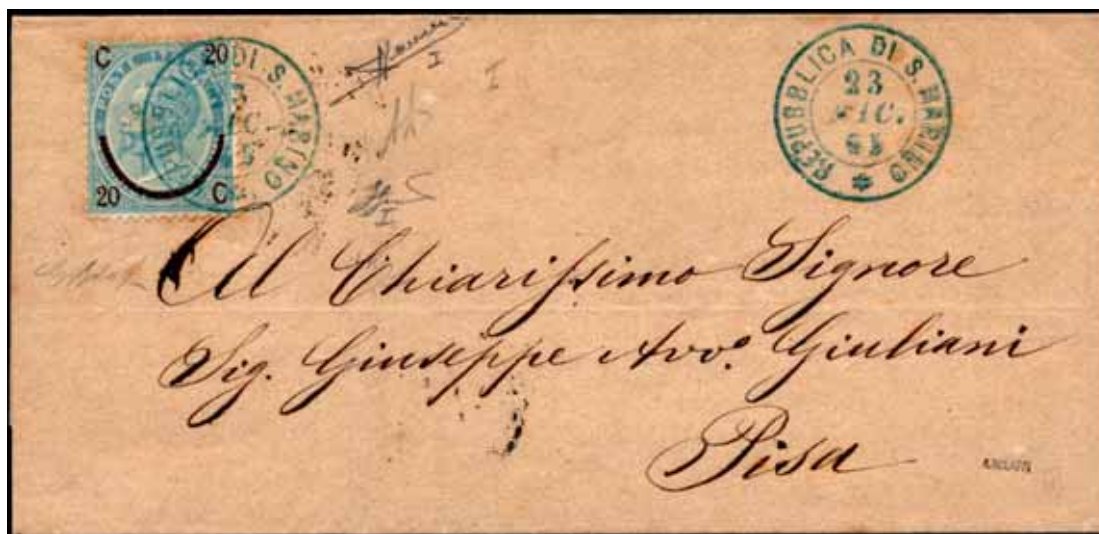 C 20
20 C
REPUBBLICA DI S. MARINO
REPUBBLICA DI S. MARINO
23
DIC.
65
Al Chiarissimo Signore
Sig. Giuseppe Avvo. Giuliani
Pisa